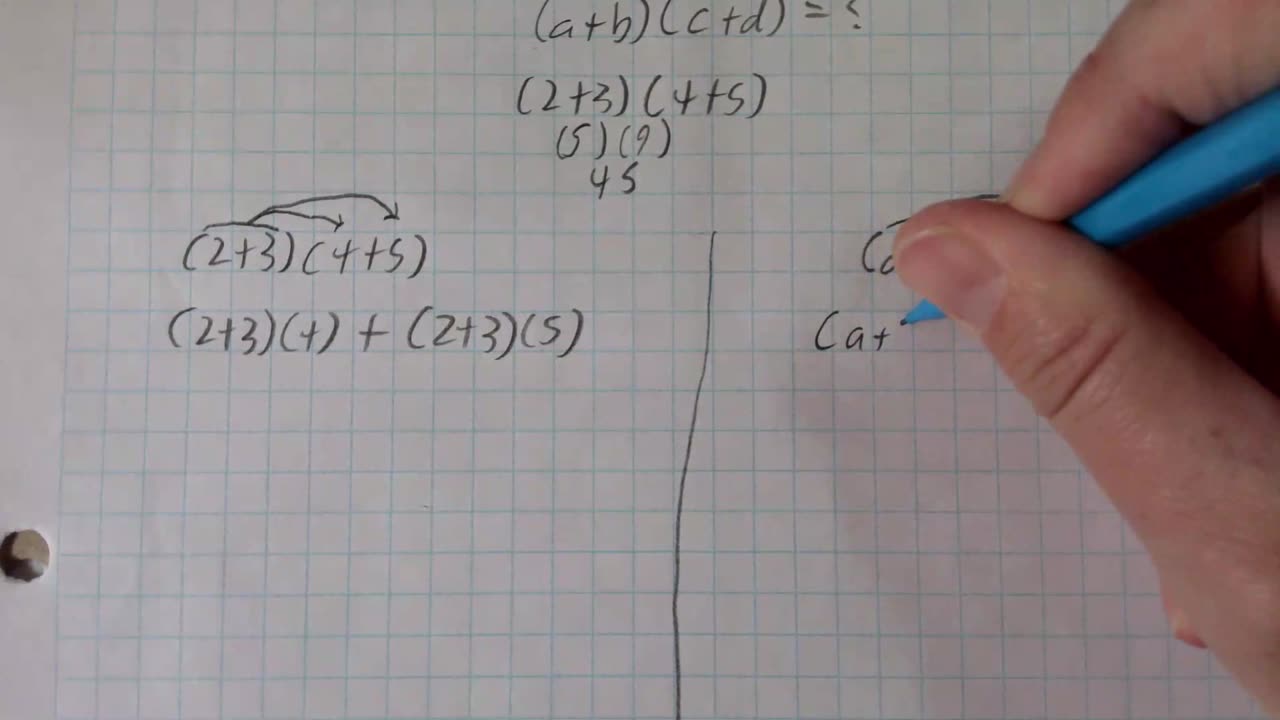 (a+b)(c+d) = ?
(2+3)(4+5)
(5)(9)
45
(2+3)(4+5)
(2+3)(4) + (2+3)(5)
(a
(a+